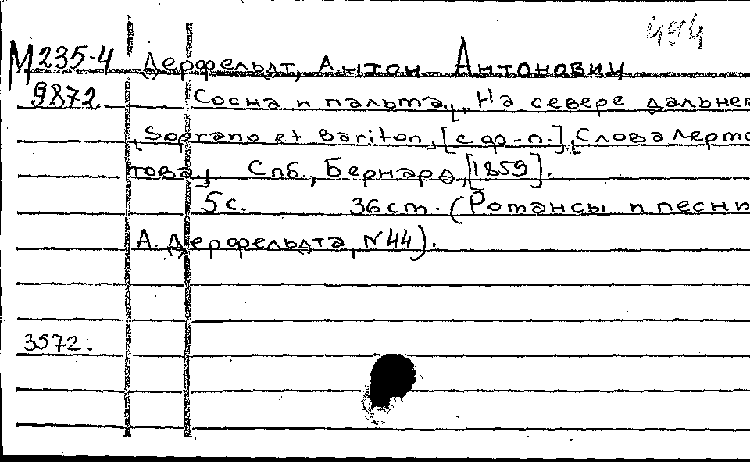 494
М235-4 Дерфельдт, Антон Антонович
9872. Сосна и пальма, "На севере дальнем
", Soprano et Bariton, [с ф-п.], Слова Лермо
това, Спб., Бернард, [1859].
5 с. 36 cm. (Романсы и песни
А. Дерфельдта, N44).
3572.